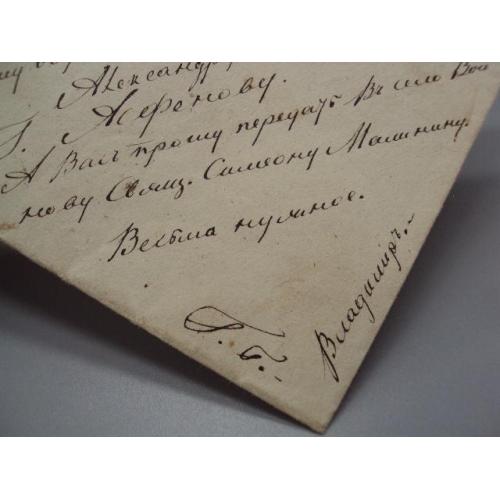 Александр
Г. Асфенову.
А Васъ прошу передать въ село Вои
нову Свящ. Симеону Малинину.
Весьма нужное.
Г. Б.
Владимиръ.